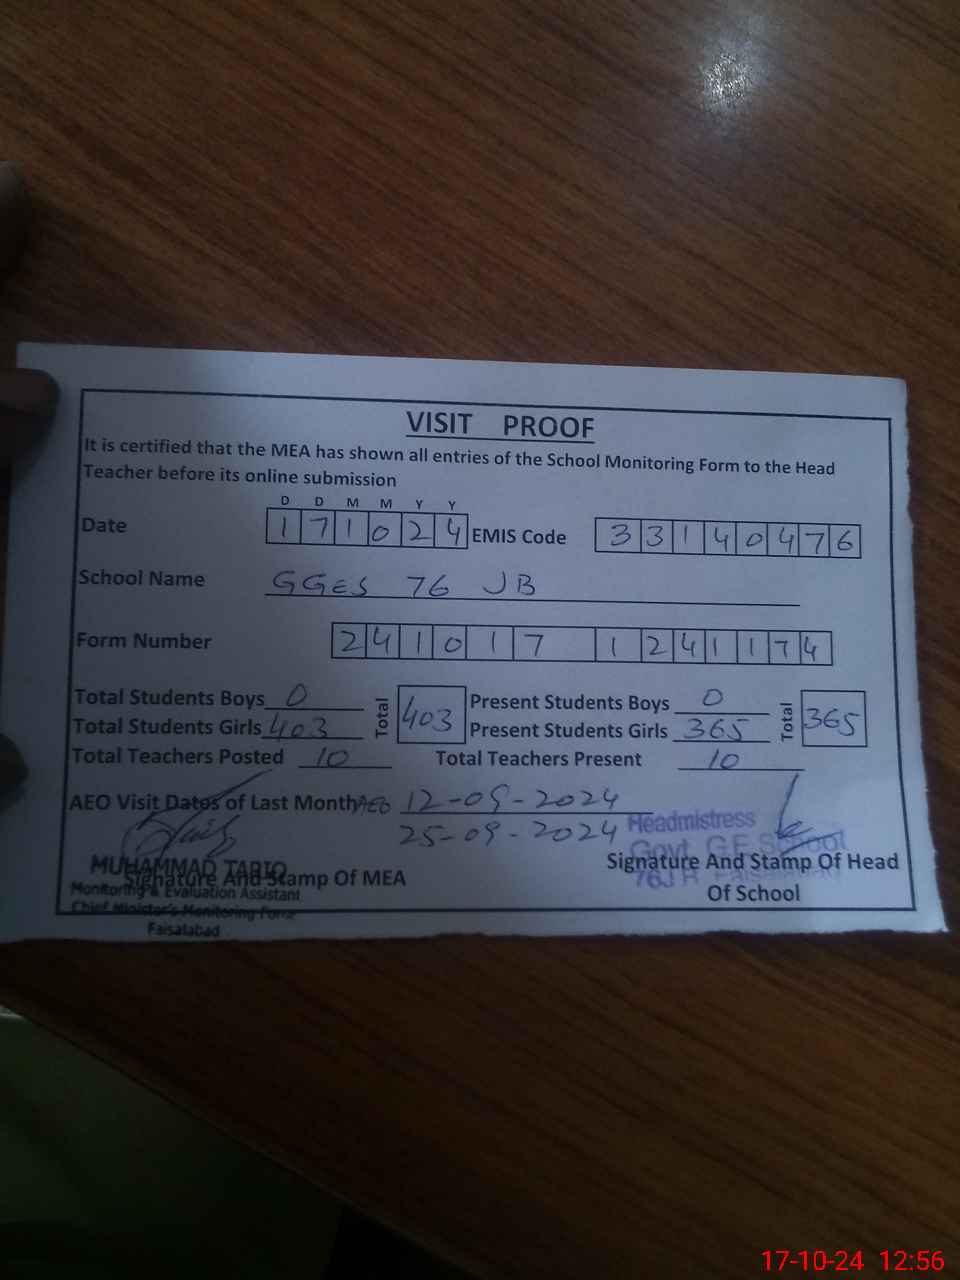 VISIT PROOF
It is certified that the MEA has shown all entries of the School Monitoring Form to the Head
Teacher before its online submission
D D M M Y Y
Date 1 7 1 0 2 4 EMIS Code 3 3 1 4 0 4 7 6
School Name GGES 76 JB
Form Number 2 4 1 0 1 7 1 2 4 1 1 7 4
Total Students Boys 0 Total 403 Present Students Boys 0 Total 365
Total Students Girls 403 Present Students Girls 365
Total Teachers Posted 10 Total Teachers Present 10
AEO Visit Dates of Last Month AEO 12-09-2024
25-09-2024
Headmistress
Govt. G.E School
76J.B Faisalabad
Signature And Stamp Of Head
Of School
MUHAMMAD TARIQ
Signature And Stamp Of MEA
Monitoring & Evaluation Assistant
Chief Minister's Monitoring Force
Faisalabad
17-10-24 12:56